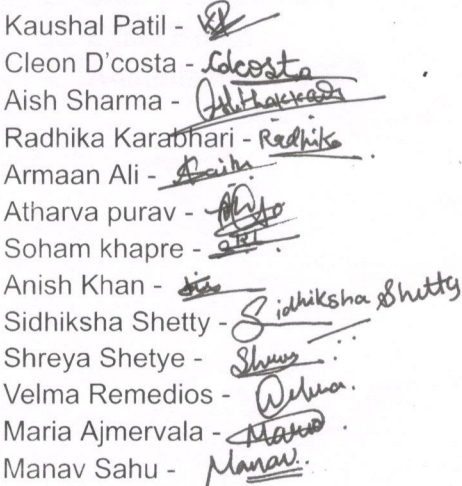 Kaushal Patil -
Cleon D'costa - Cdcosta
Aish Sharma -
Radhika Karabhari - Radhika
Armaan Ali -
Atharva purav -
Soham khapre -
Anish Khan -
Sidhiksha Shetty - Sidhiksha Shetty
Shreya Shetye -
Velma Remedios - Velma.
Maria Ajmervala - Maria
Manav Sahu - Manav